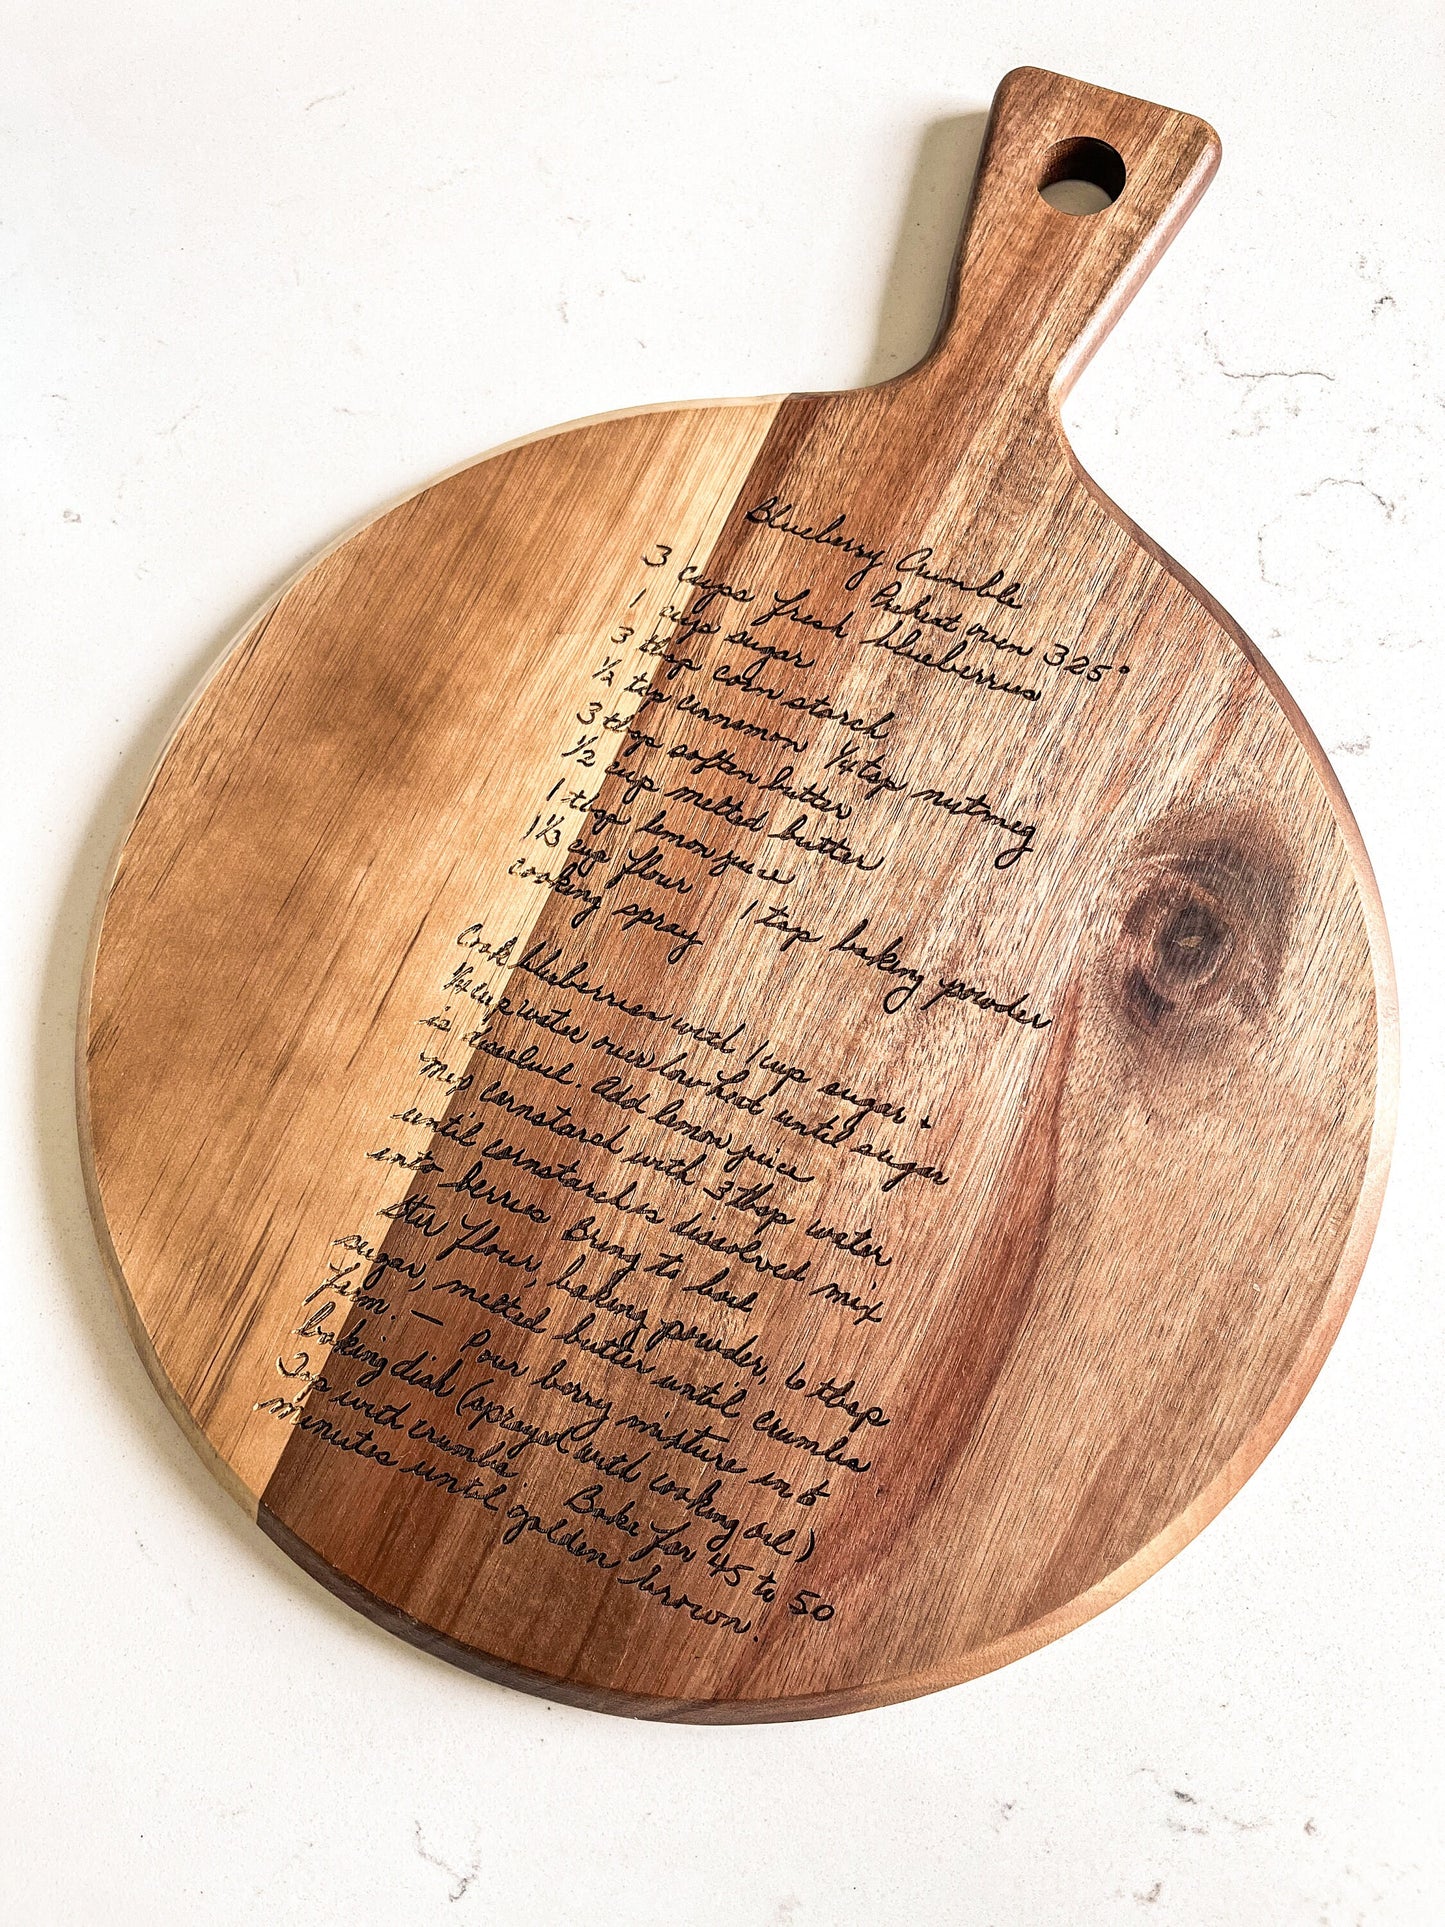 Blueberry Crumble
Preheat oven 325°
3 cups fresh blueberries
1 cup sugar
3 tbsp corn starch
1/2 tsp cinnamon 1/4 tsp nutmeg
3 tbsp soften butter
1/2 cup melted butter
1 tbsp lemon juice
1 1/3 cup flour 1 tsp baking powder
cooking spray
Cook blueberries with 1 cup sugar +
cup water over low heat until sugar
is dissolved. Add lemon juice
Mix cornstarch with 3 tbsp water
until cornstarch is dissolved mix
into berries Bring to boil
Stir flour, baking powder, 6 tbsp
sugar, melted butter until crumbs
form. — Pour berry mixture into
baking dish (sprayed with cooking oil)
Top with crumbs Bake for 45 to 50
minutes until golden brown.